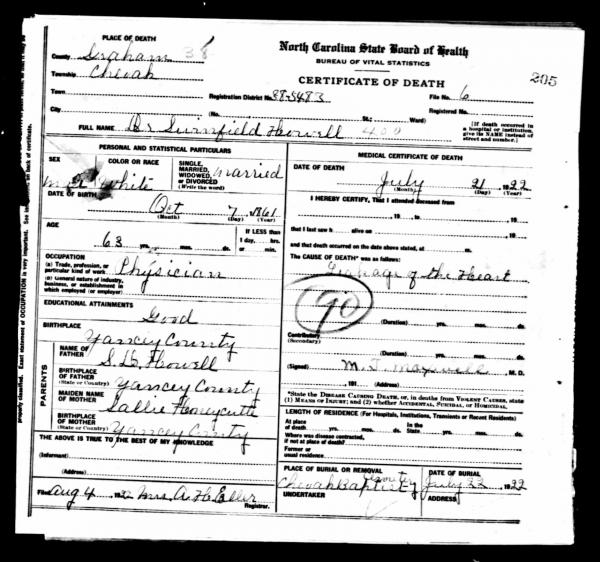 PLACE OF DEATH
County Graham 38
Township Cheoah
Town
City
North Carolina State Board of Health
BUREAU OF VITAL STATISTICS
CERTIFICATE OF DEATH
205
Registration District No. 88-5483 File No. 6
(No. St.; Ward) Registered No.
[If death occurred in a hospital or institution, give its NAME instead of street and number.]
FULL NAME Dr Howell 400
PERSONAL AND STATISTICAL PARTICULARS
SEX
COLOR OR RACE White
SINGLE, MARRIED, WIDOWED, OR DIVORCED (Write the word) Married
DATE OF BIRTH Oct 7 1861
(Day) (Year)
AGE
63 yrs. mos. ds.
If LESS than 1 day, hrs. or min.
OCCUPATION
(a) Trade, profession, or particular kind of work Physician
(b) General nature of industry, business, or establishment in which employed (or employer)
EDUCATIONAL ATTAINMENTS
Good
BIRTHPLACE
Yancey County
PARENTS
NAME OF FATHER Howell
BIRTHPLACE OF FATHER (State or Country) Yancey County
MAIDEN NAME OF MOTHER Sallie Honeycutt
BIRTHPLACE OF MOTHER (State or Country) Yancey County
THE ABOVE IS TRUE TO THE BEST OF MY KNOWLEDGE
(Informant)
(Address)
Filed Aug 4 1922 Mrs. A. H. Eller
Registrar.
MEDICAL CERTIFICATE OF DEATH
DATE OF DEATH
July 21 1922
(Month) (Day) (Year)
I HEREBY CERTIFY, That I attended deceased from
, 19 , to , 19 ,
that I last saw h alive on , 19 ,
and that death occurred on the date above stated, at m.
The CAUSE OF DEATH* was as follows:
of the Heart
90
(Duration) yrs. mos. ds.
Contributory (Secondary)
(Duration) yrs. mos. ds.
(Signed) M. T. Maxwell, M. D.
, 191 (Address)
*State the DISEASE CAUSING DEATH, or, in deaths from VIOLENT CAUSES, state (1) MEANS OF INJURY; and (2) whether ACCIDENTAL, SUICIDAL, or HOMICIDAL.
LENGTH OF RESIDENCE (For Hospitals, Institutions, Transients or Recent Residents)
At place of death yrs. mos. ds. In the State yrs. mos. ds.
Where was disease contracted, if not at place of death?
Former or usual residence
PLACE OF BURIAL OR REMOVAL
Cheoah Baptist
DATE OF BURIAL
July 22 1922
UNDERTAKER
ADDRESS